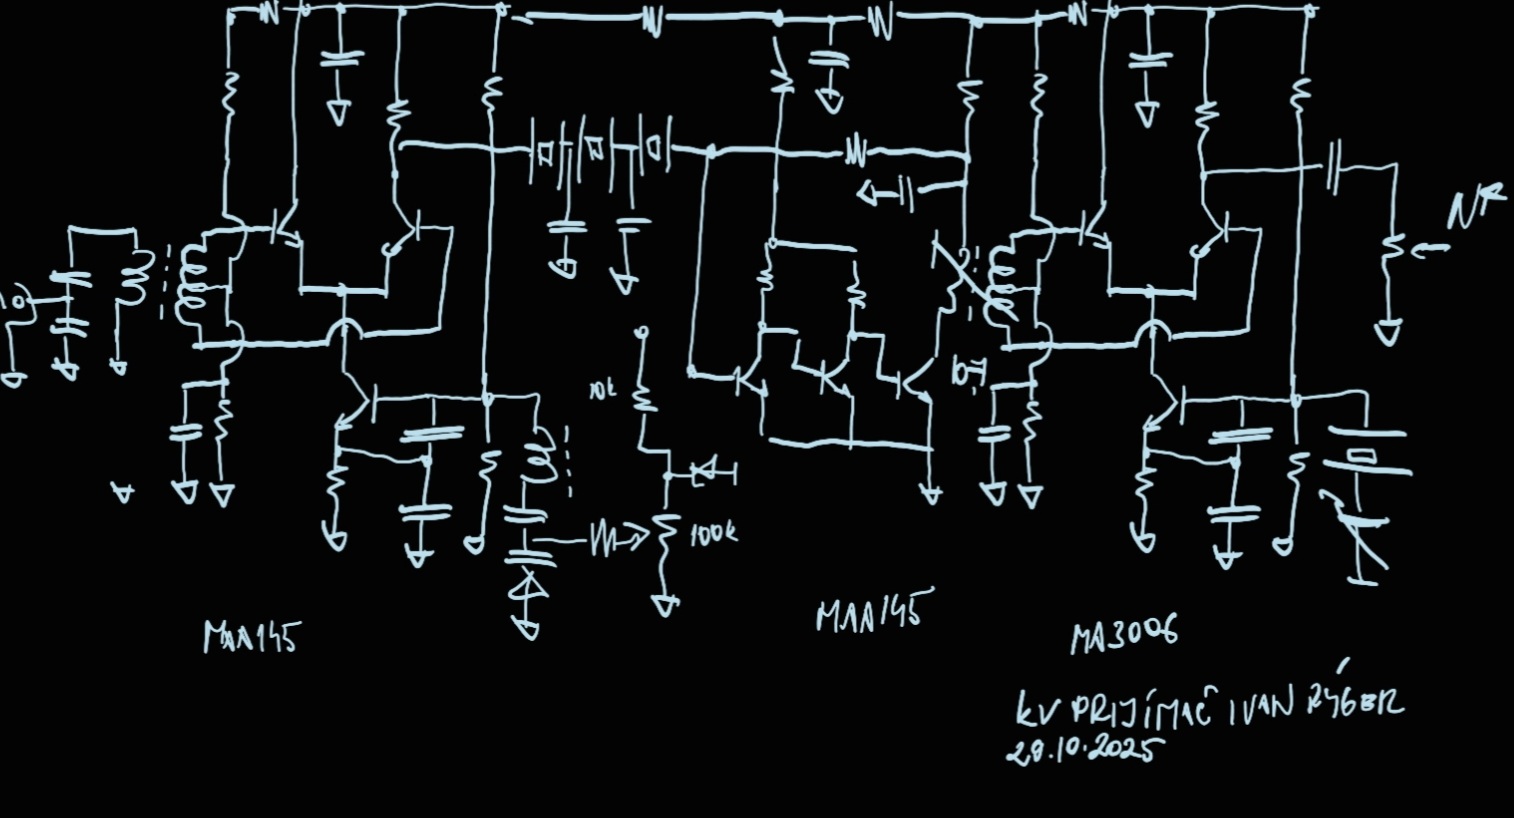 10k
100k
MAA145
MAA145
MA3006
KV PŘIJÍMAČ IVAN RÝGER
28.10.2025